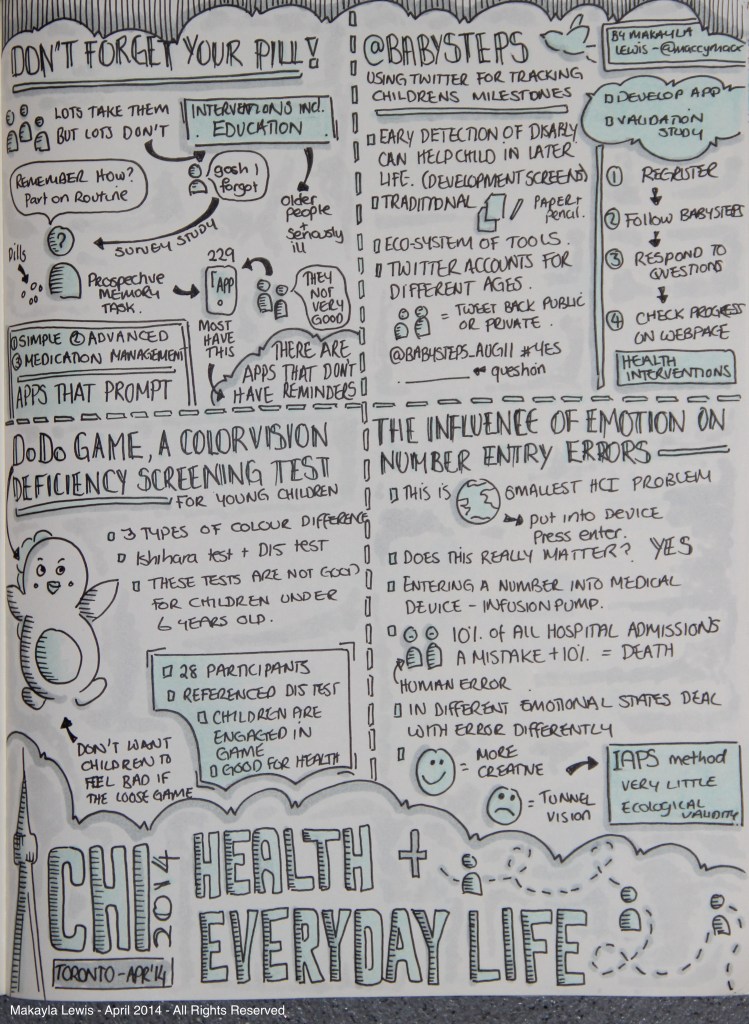 DON'T FORGET YOUR PILL!
LOTS TAKE THEM
BUT LOTS DON'T
INTERVENTIONS INCL.
EDUCATION
REMEMBER HOW?
Part on Routine
gosh I
forgot
older
people
+
seriously
ill
SURVEY STUDY
Pills
?
PROSPECTIVE
MEMORY
TASK.
229
APP
THEY
NOT
VERY
GOOD
MOST
HAVE
THIS
① SIMPLE ② ADVANCED
③ MEDICATION MANAGEMENT
APPS THAT PROMPT
THERE ARE
APPS THAT DON'T
HAVE REMINDERS
@BABYSTEPS
USING TWITTER FOR TRACKING
CHILDRENS MILESTONES
EARY DETECTION OF DISABLY
CAN HELP CHILD IN LATER
LIFE. (DEVELOPMENT SCREENS)
TRADITIONAL
PAPER +
pencil.
ECO-SYSTEM OF TOOLS.
TWITTER ACCOUNTS FOR
DIFFERENT AGES.
= TWEET BACK PUBLIC
OR PRIVATE.
@BABYSTEPS_AUG11 #YES
question
BY MAKAYLA
LEWIS - @maccymacx
DEVELOP APP
VALIDATION
STUDY
① REGISTER
② FOLLOW BABYSTEPS
③ RESPOND TO
QUESTIONS
④ CHECK PROGRESS
ON WEBPAGE
HEALTH
INTERVENTIONS
DODO GAME, A COLORVISION
DEFICIENCY SCREENING TEST
FOR YOUNG CHILDREN
3 TYPES OF COLOUR DIFFERENCE
Ishihara test + D15 test
THESE TESTS ARE NOT GOOD
FOR CHILDREN UNDER
6 YEARS OLD.
28 PARTICIPANTS
REFERENCED D15 TEST
CHILDREN ARE
ENGAGED IN
GAME
GOOD FOR HEALTH
DON'T WANT
CHILDREN TO
FEEL BAD IF
THE LOOSE GAME
THE INFLUENCE OF EMOTION ON
NUMBER ENTRY ERRORS
THIS IS SMALLEST HCI PROBLEM
put into DEVICE
Press enter.
DOES THIS REALLY MATTER? YES
ENTERING A NUMBER INTO MEDICAL
DEVICE - INFUSION PUMP.
10% OF ALL HOSPITAL ADMISSIONS
A MISTAKE + 10% = DEATH
HUMAN ERROR
IN DIFFERENT EMOTIONAL STATES DEAL
WITH ERROR DIFFERENTLY
= MORE
CREATIVE
= TUNNEL
VISION
IAPS method
VERY LITTLE
ECOLOGICAL
VALIDITY
CHI 2014
TORONTO - APR'14
HEALTH +
EVERYDAY LIFE
Makayla Lewis - April 2014 - All Rights Reserved